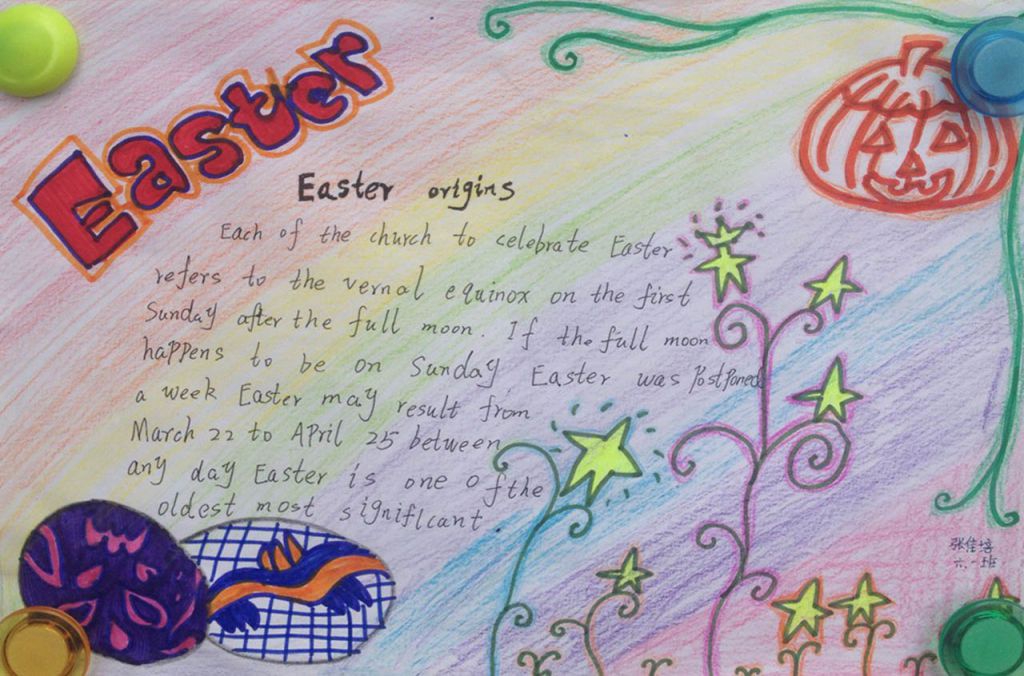 Easter
Easter origins
Each of the church to celebrate Easter
refers to the vernal equinox on the first
Sunday after the full moon. If the full moon
happens to be on Sunday, Easter was Postponed
a week Easter may result from
March 22 to April 25 between
any day Easter is one of the
oldest most significant.
张佳培
六.一班